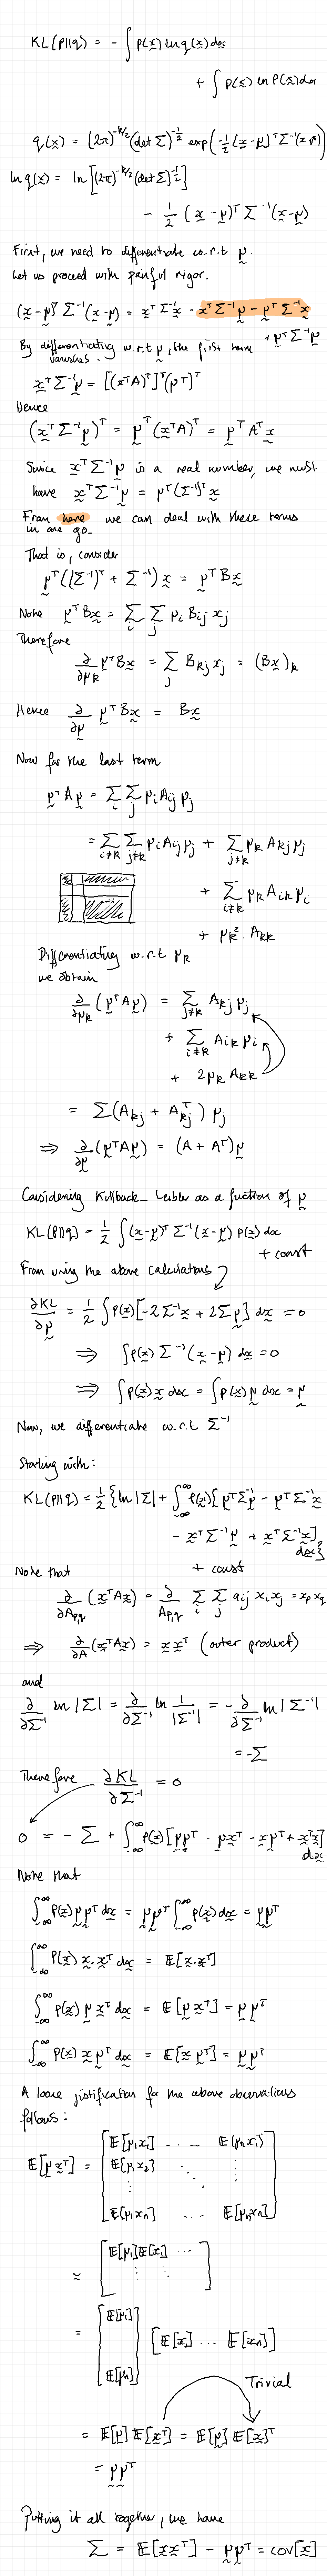 KL(p||q) = - ∫ p(x) ln q(x) dx
+ ∫ p(x) ln p(x) dx
q(x) = (2π)^{-k/2} (det Σ)^{-1/2} exp(-1/2 (x-μ)ᵀ Σ⁻¹(x-μ))
ln q(x) = ln[(2π)^{-k/2} (det Σ)^{-1/2}]
- 1/2 (x-μ)ᵀ Σ⁻¹(x-μ)
First, we need to differentiate w.r.t μ.
Let us proceed with painful rigor.
(x-μ)ᵀ Σ⁻¹(x-μ) = xᵀΣ⁻¹x - xᵀΣ⁻¹μ - μᵀΣ⁻¹x
+ μᵀΣ⁻¹μ
By differentiating w.r.t μ, the first term
vanishes.
xᵀΣ⁻¹μ = [(xᵀA)ᵀ]ᵀ(μᵀ)ᵀ
Hence
(xᵀΣ⁻¹μ)ᵀ = μᵀ(xᵀA)ᵀ = μᵀAᵀx
Since xᵀΣ⁻¹μ is a real number, we must
have xᵀΣ⁻¹μ = μᵀ(Σ⁻¹)ᵀx
From here we can deal with these terms
in one go.
That is, consider
μᵀ((Σ⁻¹)ᵀ + Σ⁻¹)x = μᵀBx
Note μᵀBx = Σ_i Σ_j μ_i B_ij x_j
Therefore
∂/∂μ_k μᵀBx = Σ_j B_kj x_j = (Bx)_k
Hence ∂/∂μ μᵀBx = Bx
Now for the last term
μᵀAμ = Σ_i Σ_j μ_i A_ij μ_j
= Σ_{i≠k} Σ_{j≠k} μ_i A_ij μ_j + Σ_{j≠k} μ_k A_kj μ_j
+ Σ_{i≠k} μ_k A_ik μ_i
+ μ_k². A_kk
Differentiating w.r.t μ_k
we obtain
∂/∂μ_k (μᵀAμ) = Σ_{j≠k} A_kj μ_j
+ Σ_{i≠k} A_ik μ_i
+ 2μ_k A_kk
= Σ(A_kj + A_kjᵀ) μ_j
⇒ ∂/∂μ (μᵀAμ) = (A + Aᵀ)μ
Considering Kullback-Leibler as a function of μ
KL(p||q) = 1/2 ∫(x-μ)ᵀ Σ⁻¹(x-μ) p(x) dx
+ const
From using the above calculations
∂KL/∂μ = 1/2 ∫p(x)[-2Σ⁻¹x + 2Σμ] dx = 0
⇒ ∫p(x) Σ⁻¹(x-μ) dx = 0
⇒ ∫p(x) x dx = ∫p(x) μ dx = μ
Now, we differentiate w.r.t Σ⁻¹
Starting with:
KL(p||q) = 1/2 {ln|Σ| + ∫_{-∞}^{∞} p(x)[μᵀΣ⁻¹μ - μᵀΣ⁻¹x
- xᵀΣ⁻¹μ + xᵀΣ⁻¹x]
dx}
+ const
Note that
∂/∂A_{p,q} (xᵀAx) = ∂/A_{p,q} Σ_i Σ_j a_ij x_i x_j = x_p x_q
⇒ ∂/∂A (xᵀAx) = x xᵀ (outer product)
and
∂/∂Σ⁻¹ ln|Σ| = ∂/∂Σ⁻¹ ln 1/|Σ⁻¹| = -∂/∂Σ⁻¹ ln|Σ⁻¹|
= -Σ
Therefore ∂KL/∂Σ⁻¹ = 0
0 = -Σ + ∫_{-∞}^{∞} p(x)[μμᵀ - μxᵀ - xμᵀ + xᵀx]
dx
Note that
∫_{-∞}^{∞} p(x) μμᵀ dx = μμᵀ ∫_{-∞}^{∞} p(x) dx = μμᵀ
∫_{-∞}^{∞} p(x) x.xᵀ dx = E[x.xᵀ]
∫_{-∞}^{∞} p(x) μ xᵀ dx = E[μxᵀ] = μμᵀ
∫_{-∞}^{∞} p(x) x μᵀ dx = E[xμᵀ] = μμᵀ
A loose justification for the above observations
follows:
E[μxᵀ] = [E[μ₁x₁] ... E(μₙx₁)
E[μ₁x₂]
E[μ₁xₙ] ... E[μₙxₙ]]
= [E[μ₁]E[x₁] ...]
= [E[μ₁] E[μₙ]] [E[x₁] ... E[xₙ]]
Trivial
= E[μ] E[xᵀ] = E[μ] E[x]ᵀ
= μμᵀ
Putting it all together, we have
Σ = E[xxᵀ] - μμᵀ = cov[x]